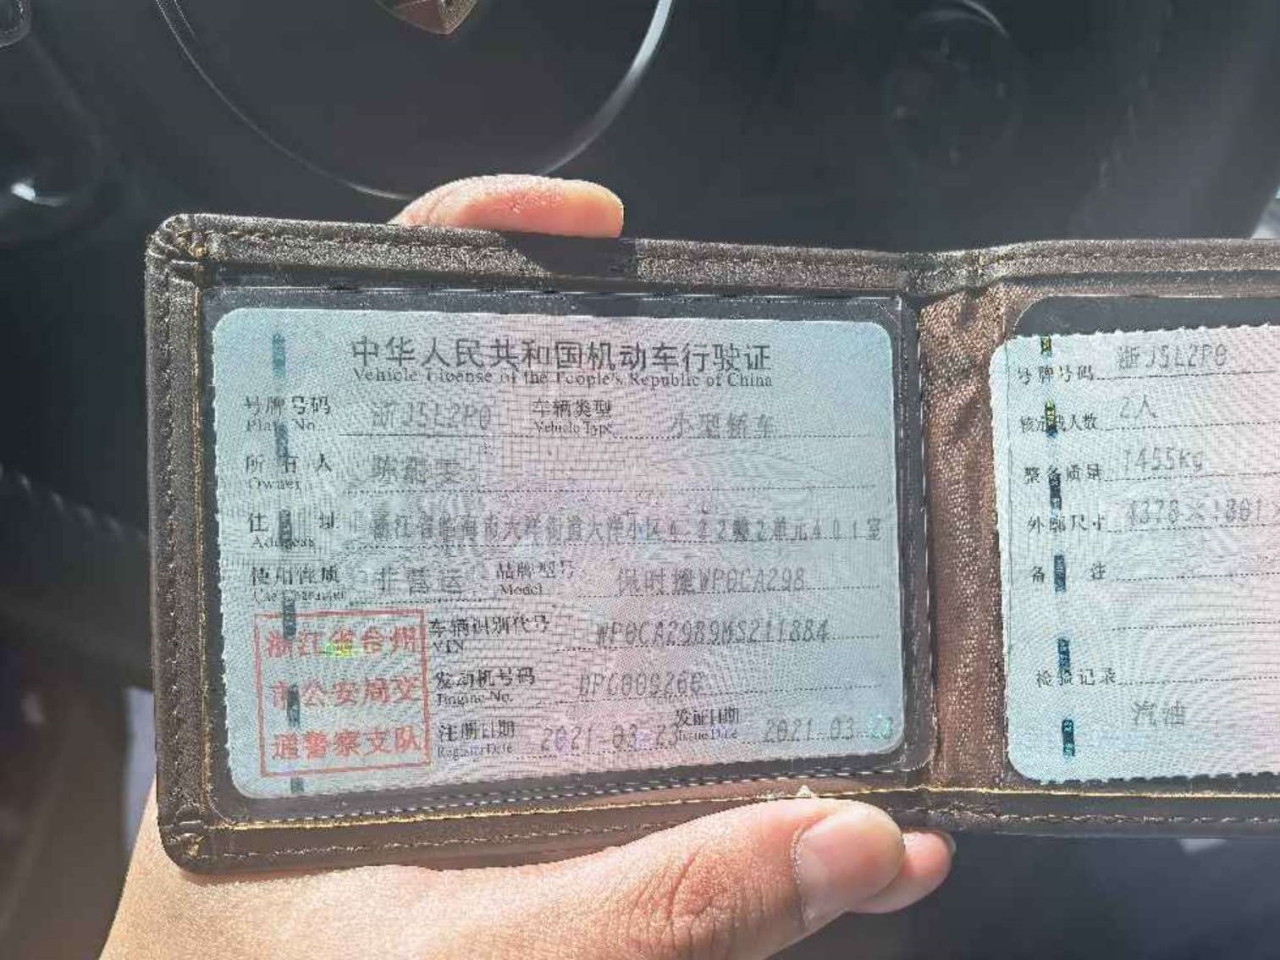 中华人民共和国机动车行驶证
Vehicle License of the People's Republic of China
号牌号码 浙J5L2P0 车辆类型 小型轿车
Plate No. Vehicle Type
所有人 陈
Owner
住址 浙江省临海市大洋街道大洋小区 2单元401室
Address
使用性质 非营运 品牌型号 保时捷WP0CA298
Use Character Model
车辆识别代号 WP0CA2989MS211884
VIN
发动机号码
Engine No.
注册日期 2021-03-23 发证日期 2021-03-23
Register Date Issue Date
浙江省台州
市公安局交
通警察支队
号牌号码 浙J5L2P0
核定载人数 2人
整备质量 1455kg
外廓尺寸 4378×1801×
备注
检验记录
汽油